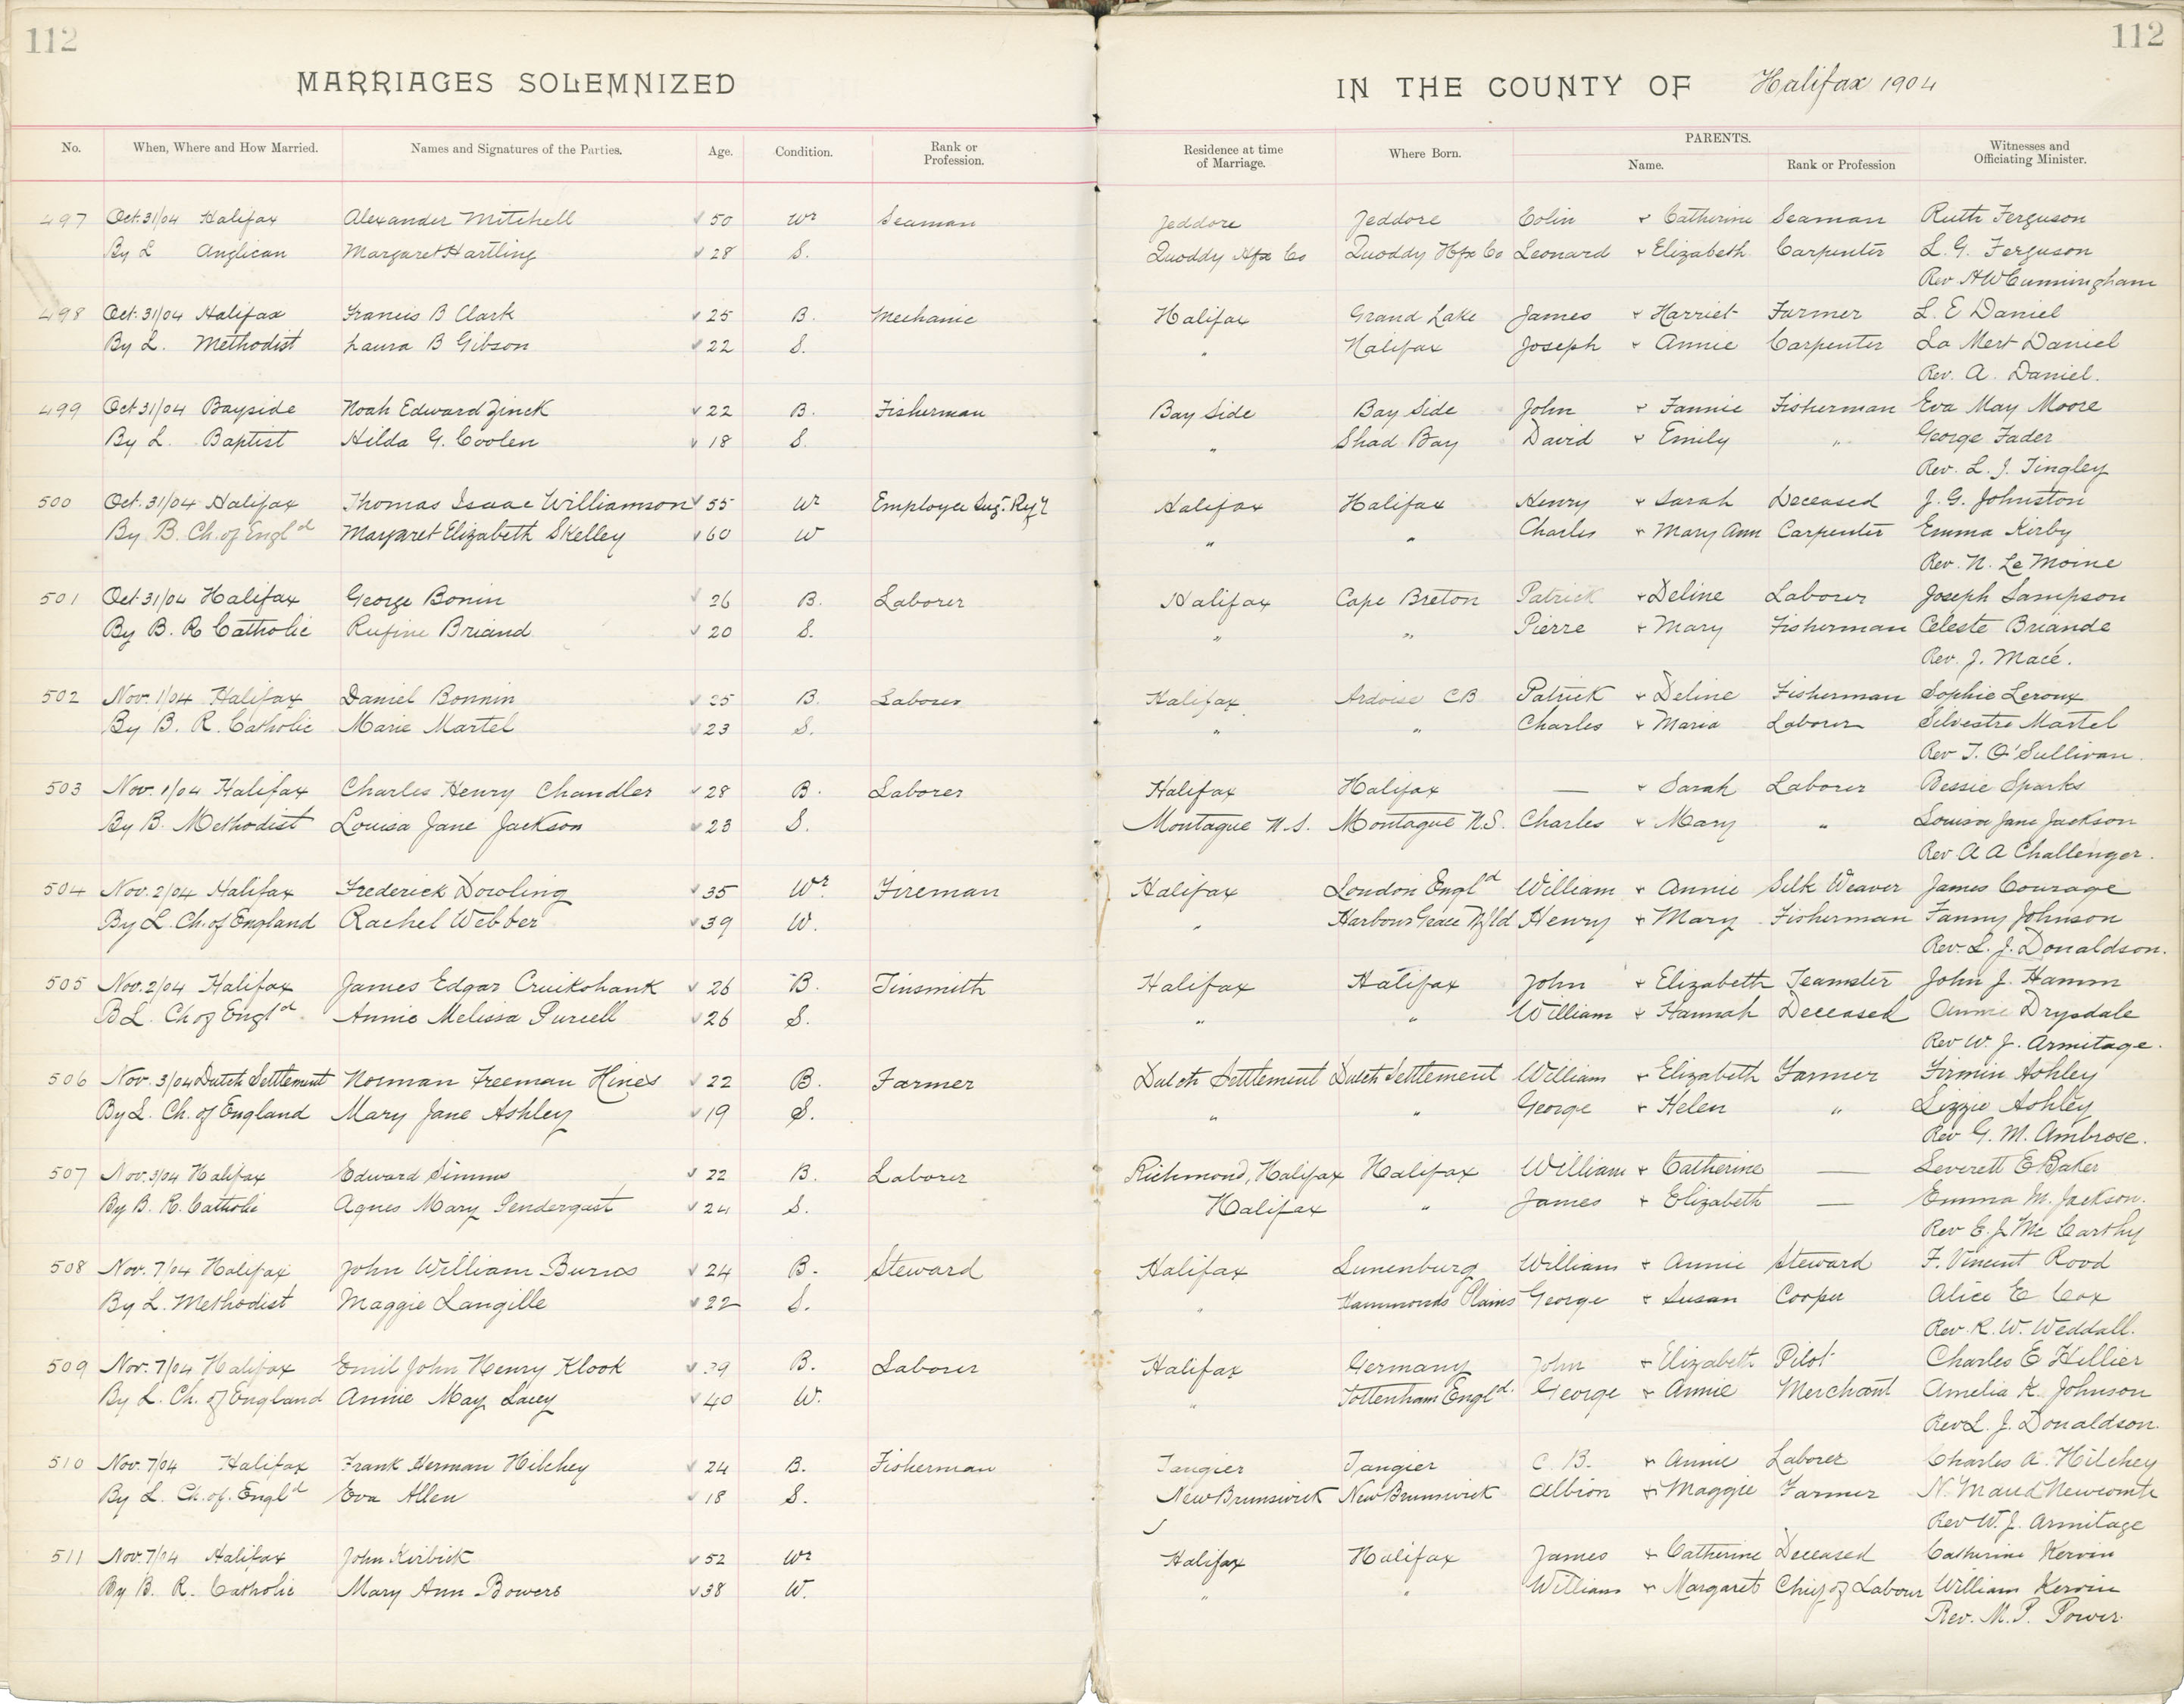 112
112
MARRIAGES SOLEMNIZED IN THE COUNTY OF Halifax 1904
No. When, Where and How Married. Names and Signatures of the Parties. Age. Condition. Rank or Profession. Residence at time of Marriage. Where Born. PARENTS. Name. Rank or Profession Witnesses and Officiating Minister.
497 Oct. 31/04 Halifax Alexander Mitchell 50 Wr Seaman Jeddore Jeddore Colin + Catherine Seaman Ruth Ferguson
By L Anglican Margaret Hartling 28 S. Quoddy Hfx Co Quoddy Hfx Co Leonard + Elizabeth Carpenter L. G. Ferguson
Rev H W Cunningham
498 Oct. 31/04 Halifax Francis B Clark 25 B. Mechanic Halifax Grand Lake James + Harriet Farmer L. E Daniel
By L. Methodist Laura B Gibson 22 S. " Halifax Joseph + Annie Carpenter La Mert Daniel
Rev. A. Daniel.
499 Oct 31/04 Bayside Noah Edward Zinck 22 B. Fisherman Bay Side Bay Side John + Fannie Fisherman Eva May Moore
By L. Baptist Hilda G. Coolen 18 S. " Shad Bay David + Emily " George Fader
Rev. L. J. Tingley
500 Oct. 31/04 Halifax Thomas Isaac Williamson 55 Wr Employee Sug. Ry'y Halifax Halifax Henry + Sarah Deceased J. G. Johnston
By B. Ch. of Engld Margaret Elizabeth Skelley 60 W " " Charles + Mary Ann Carpenter Emma Kirby
Rev. N. Le Moine
501 Oct 31/04 Halifax George Bonin 26 B. Laborer Halifax Cape Breton Patrick + Deline Laborer Joseph Sampson
By B. R Catholic Rufine Briand 20 S. " " Pierre + Mary Fisherman Celeste Briande
Rev. J. Macé.
502 Nov. 1/04 Halifax Daniel Bonnin 25 B. Laborer Halifax Ardoise CB Patrick + Deline Fisherman Sophie Leroux
By B. R. Catholic Marie Martel 23 S. " " Charles + Maria Laborer Silvestre Martel
Rev T. O'Sullivan.
503 Nov. 1/04 Halifax Charles Henry Chandler 28 B. Laborer Halifax Halifax — + Sarah Laborer Bessie Sparks
By B. Methodist Louisa Jane Jackson 23 S. Montague N.S. Montague N.S. Charles + Mary " Louisa Jane Jackson
Rev A A Challenger.
504 Nov. 2/04 Halifax Frederick Dowling 35 Wr. Fireman Halifax London Engld William + Annie Silk Weaver James Courage
By L. Ch. of England Rachel Webber 39 W. " Harbour Grace Nfld Henry + Mary Fisherman Fanny Johnson
Rev. L. J. Donaldson.
505 Nov. 2/04 Halifax James Edgar Cruikshank 26 B. Tinsmith Halifax Halifax John + Elizabeth Teamster John J. Hamm
B L. Ch of Engld. Annie Melissa Purcell 26 S. " " William + Hannah Deceased Annie Drysdale
Rev W. J. Armitage.
506 Nov. 3/04 Dutch Settlement Norman Freeman Hines 22 B. Farmer Dutch Settlement Dutch Settlement William + Elizabeth Farmer Firmin Ashley
By L. Ch. of England Mary Jane Ashley 19 S. " " George + Helen " Lizzie Ashley
Rev G. M. Ambrose.
507 Nov. 3/04 Halifax Edward Simms 22 B. Laborer Richmond, Halifax Halifax William + Catherine — Leverett E Baker
By B. R. Catholic Agnes Mary Pendergast 24 S. Halifax " James + Elizabeth — Emma M. Jackson.
Rev E. J. Mc Carthy
508 Nov. 7/04 Halifax John William Burns 24 B. Steward Halifax Lunenburg William + Annie Steward F. Vincent Rood
By L. Methodist Maggie Langille 22 S. " Hammonds Plains George + Susan Cooper Alice E Cox
Rev. R. W. Weddall.
509 Nov. 7/04 Halifax Emil John Henry Klook 39 B. Laborer Halifax Germany John + Elizabeth Pilot Charles E Hillier
By L. Ch. of England Annie May Lacey 40 W. " Tottenham Engld. George + Annie Merchant Amelia K. Johnson
Rev L. J. Donaldson.
510 Nov. 7/04 Halifax Frank Herman Hilchey 24 B. Fisherman Tangier Tangier C B. + Annie Laborer Charles A. Hilchey
By L. Ch. of. Engld Eva Allen 18 S. New Brunswick New Brunswick Albion + Maggie Farmer N. Maud Newcombe
Rev W. J. Armitage
511 Nov. 7/04 Halifax John Kirbick 52 Wr Halifax Halifax James + Catherine Deceased Catherine Kervin
By B. R. Catholic Mary Ann Bowers 38 W. " " William + Margaret Chief of Labour William Kervin
Rev. M. P. Power.